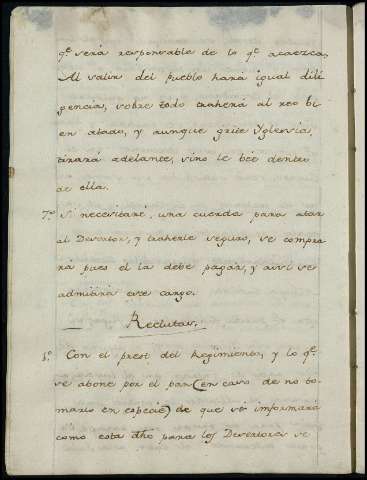 qe. será responsable de lo qe. acaezca.
Al salir del pueblo hará igual dili
gencia, sobre todo traherá al reo bi
en atado, y aunque grite Yglesia,
tirará adelante, sino le coe dentro
de ella.
7.º Si necesitáre, una cuerda para atar
al Desertor, y traherle seguro, se compra
rá pues el la debe pagar, y assi se
admitirá este cargo.
Reclutas.
1.º Con el prest del Regimiento, y lo qe.
se abone por el pan (en caso de no to
marlo en especie) de que se informará
como esta dho para los Desertores se